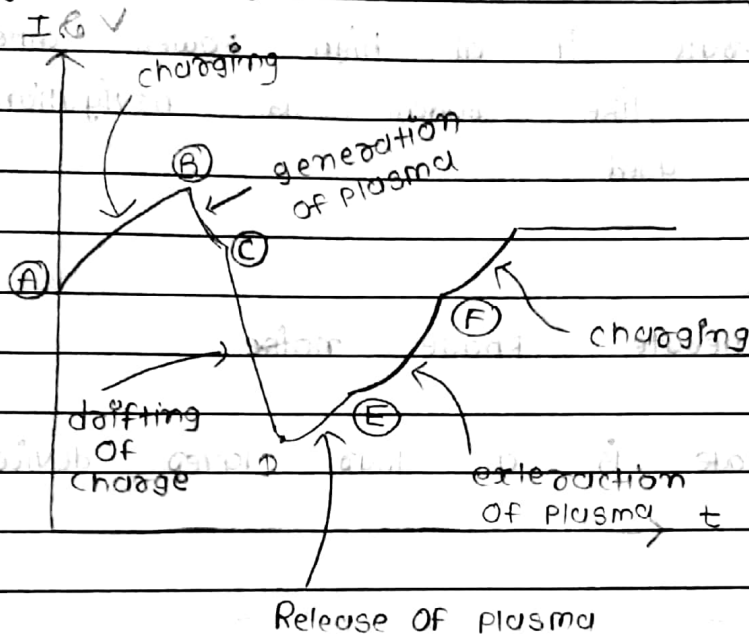 I & V
charging
B
generation
of plasma
C
A
F
charging
drifting
of
charge
E
D
exteraction
of plasma
t
Release of plasma